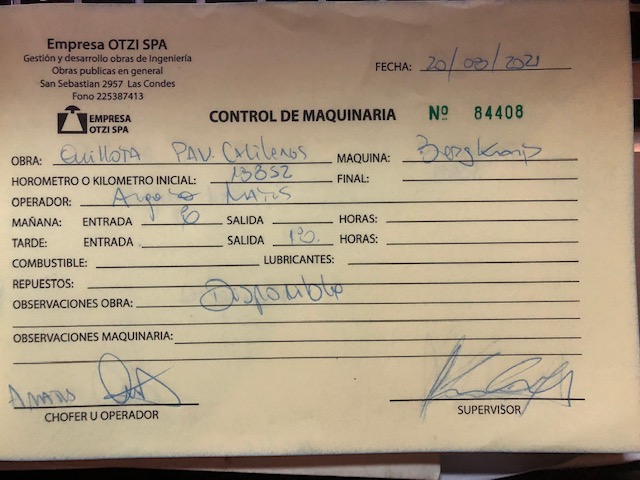 Empresa OTZI SPA
Gestión y desarrollo obras de Ingeniería
Obras publicas en general
San Sebastian 2957 Las Condes
Fono 225387413
FECHA: 20/08/2021
EMPRESA
OTZI SPA
CONTROL DE MAQUINARIA Nº 84408
OBRA: Quillota PAV MAQUINA:
HOROMETRO O KILOMETRO INICIAL: 13832 FINAL:
OPERADOR:
MAÑANA: ENTRADA 8 SALIDA HORAS:
TARDE: ENTRADA SALIDA HORAS:
COMBUSTIBLE: LUBRICANTES:
REPUESTOS:
OBSERVACIONES OBRA: Disponible
OBSERVACIONES MAQUINARIA:
CHOFER U OPERADOR
SUPERVISOR